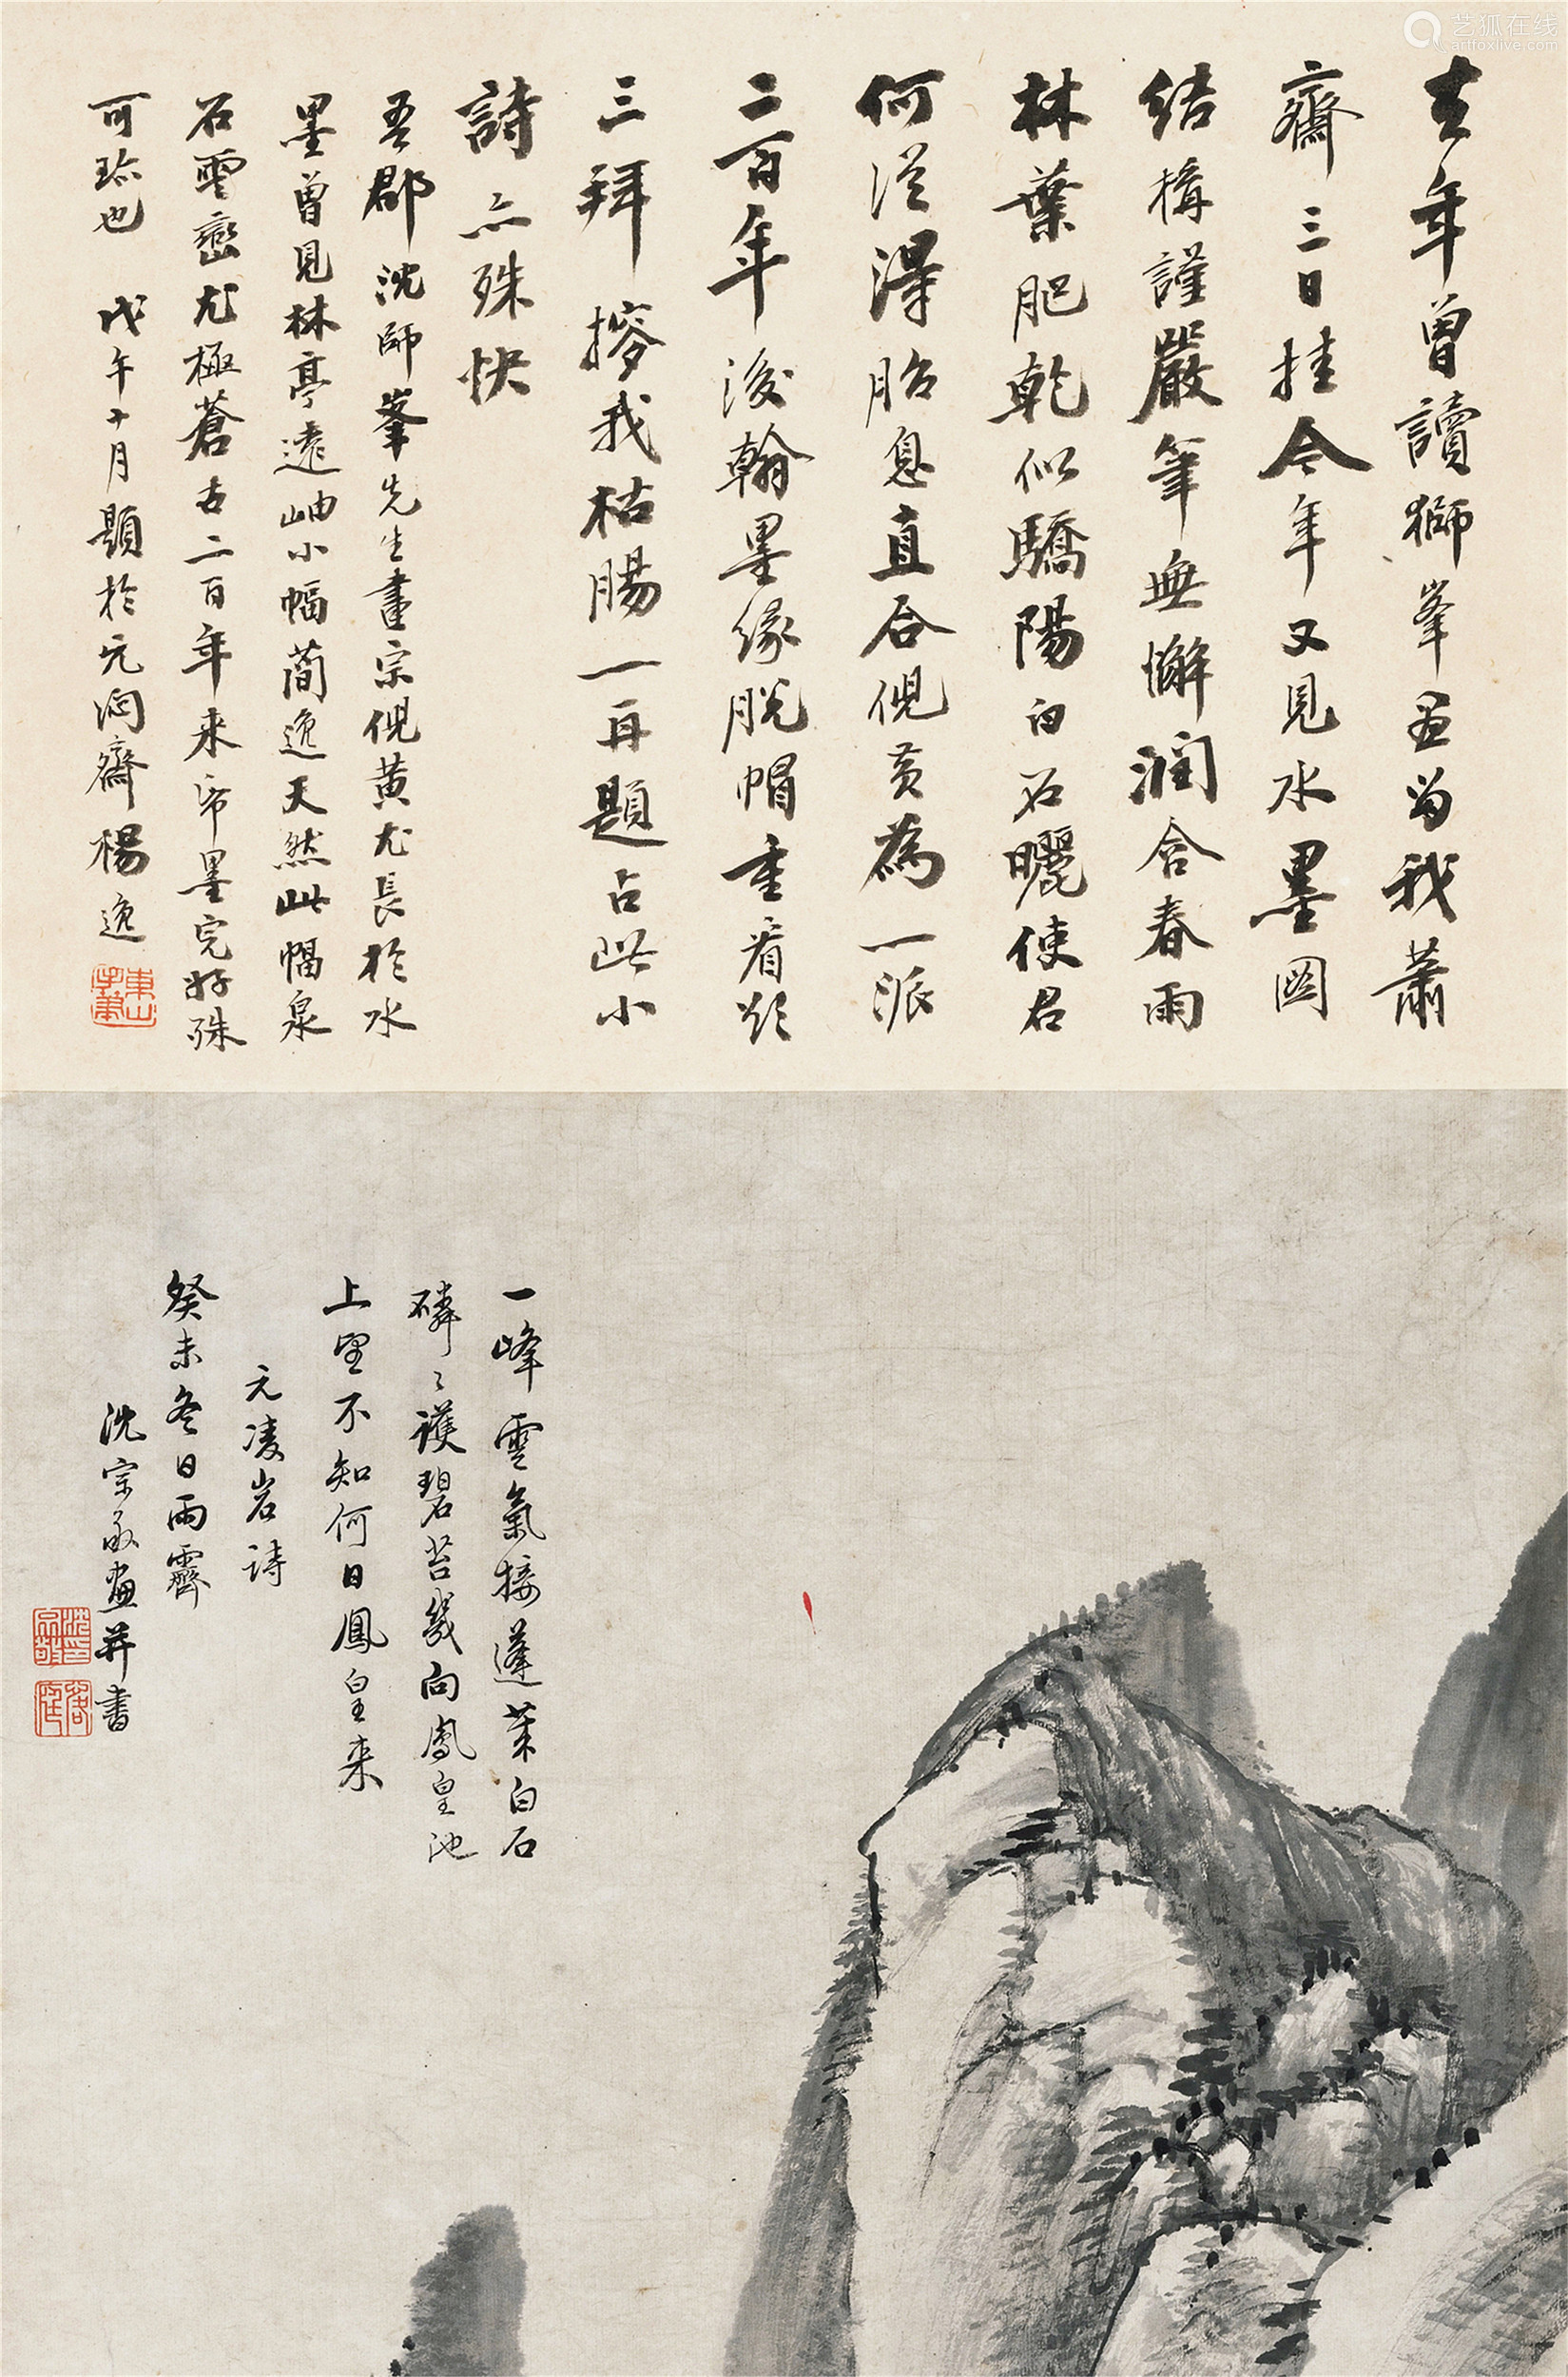 去年曾讀獅峯画留我蕭
齋三日挂今年又見水墨圖
結構謹嚴筆無懈潤含春雨
林葉肥乾似驕陽白石曬使君
何從得胎息直合倪黃為一派
二百年後翰墨緣脫帽重看欵
三拜搜我枯腸一再題占此小
詩亦殊快
吾郡沈師峯先生畫宗倪黄尤長於水
墨曾見林亭遠岫小幅蕳逸天然此幅泉
石雲巒尤極蒼古二百年来帋墨完好殊
可珎也 戊午十月題於元洞齋楊逸
東山
一峰雲氣接蓬莱白石
磷々護碧苔幾向鳳皇池
上望不知何日鳳皇来
元凌岩詩
癸未冬日雨霽
沈宗敬画并書
艺狐在线
artfoxlive.com